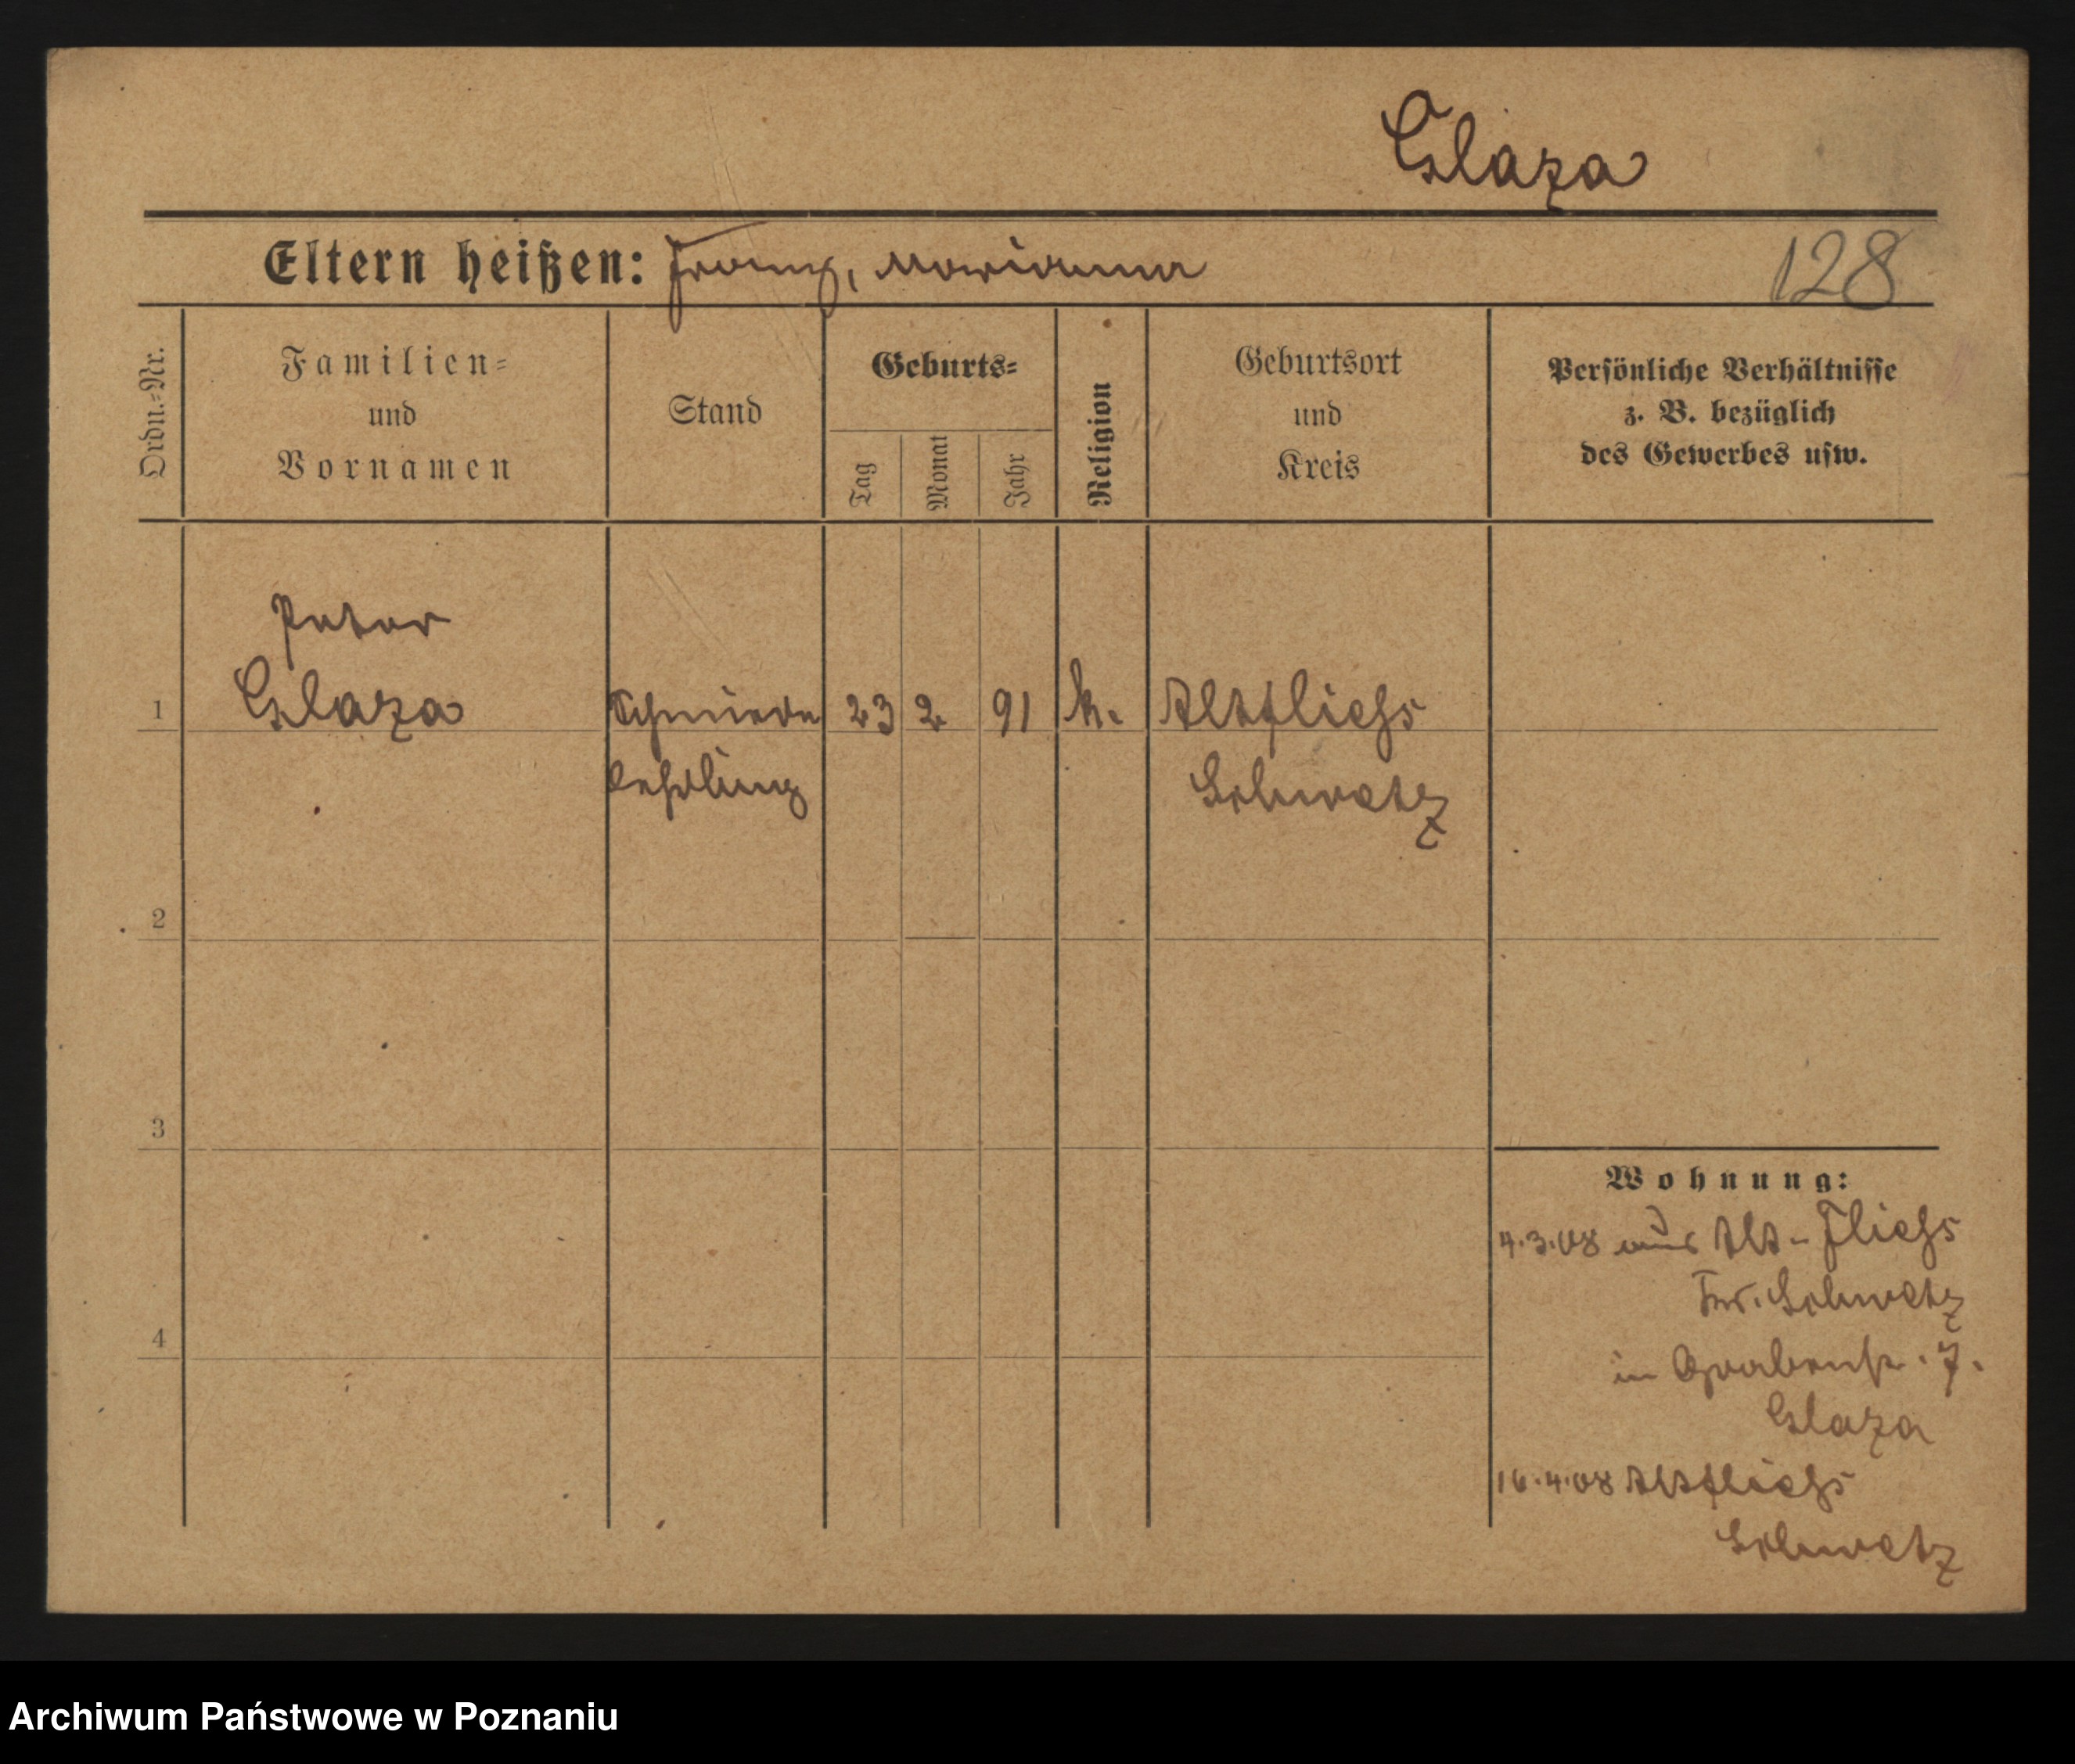 Glaza
Eltern heißen: Franz, Marianna
128
Ordn.-Nr.
Familien-
und
Vornamen
Stand
Geburts-
Tag
Monat
Jahr
Religion
Geburtsort
und
Kreis
Persönliche Verhältnisse
z. B. bezüglich
des Gewerbes usw.
Peter
1 Glaza Schmiede 23 2 91 k. Altfliess
lehrling Schwetz
2
3
4
Wohnung:
4.3.08 aus Alt-Fliess
Krs. Schwetz
in Grabenstr. 7.
Glaza
16.4.08 Altfliess
Schwetz
Archiwum Państwowe w Poznaniu